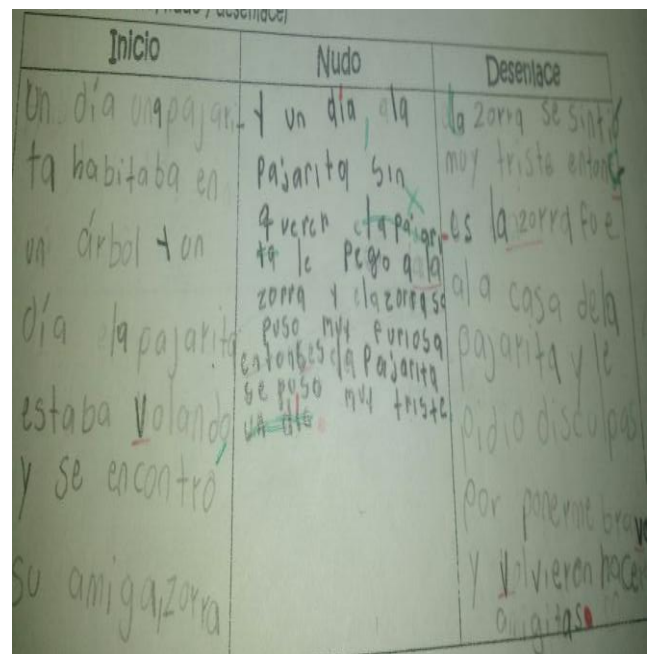 Inicio
Un día una pajari-
ta habitaba en
un árbol y un
día la pajarita
estaba volando
y se encontró
su amiga, zorra
Nudo
Y un día, ala
pajarita sin
querer la pajari-
ta le pego a la
zorra y la zorra se
puso muy furiosa
entonses la pajarita
se puso muy triste
un día
Desenlace
la zorra se sintió
muy triste entonc
es la zorra foe
ala casa dela
pajarita y le
pidio disculpas
por ponerme brava
y volvieron hacer
amigitas.